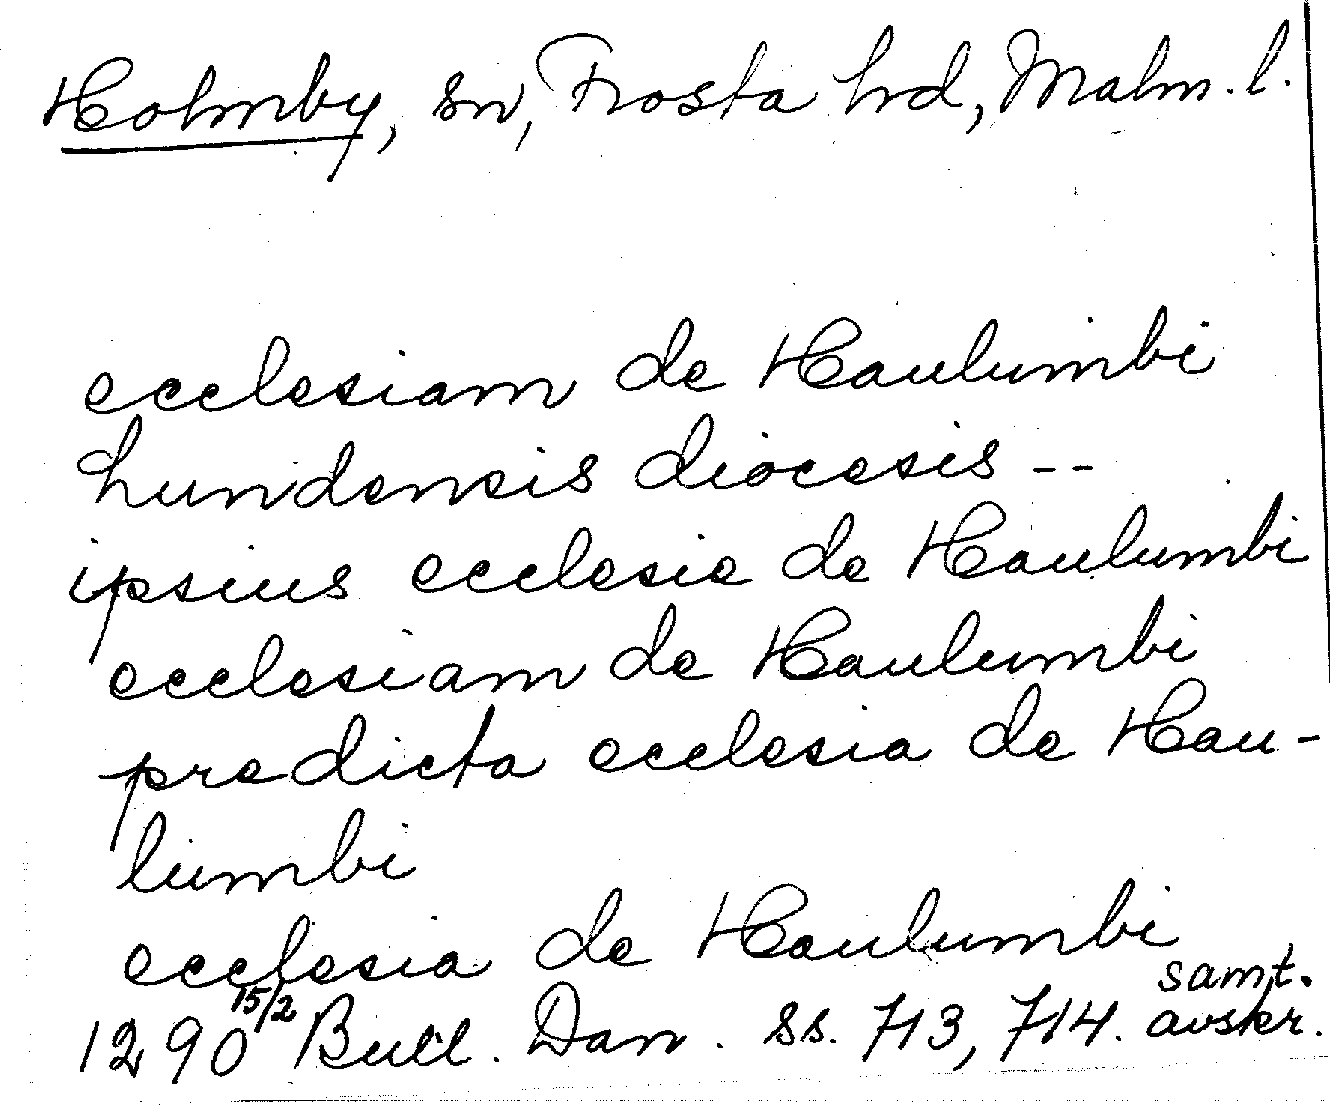 Holmby, sn, Frosta hrd, Malm. l.
ecclesiam de Haulumbi
Lundensis diocesis --
ipsius ecclesie de Haulumbi
ecclesiam de Haulumbi
predicta ecclesia de Hau-
lumbi
ecclesia de Haulumbi
1290 15/2 Bull. Dan. ss. 713, 714. samt. avskr.